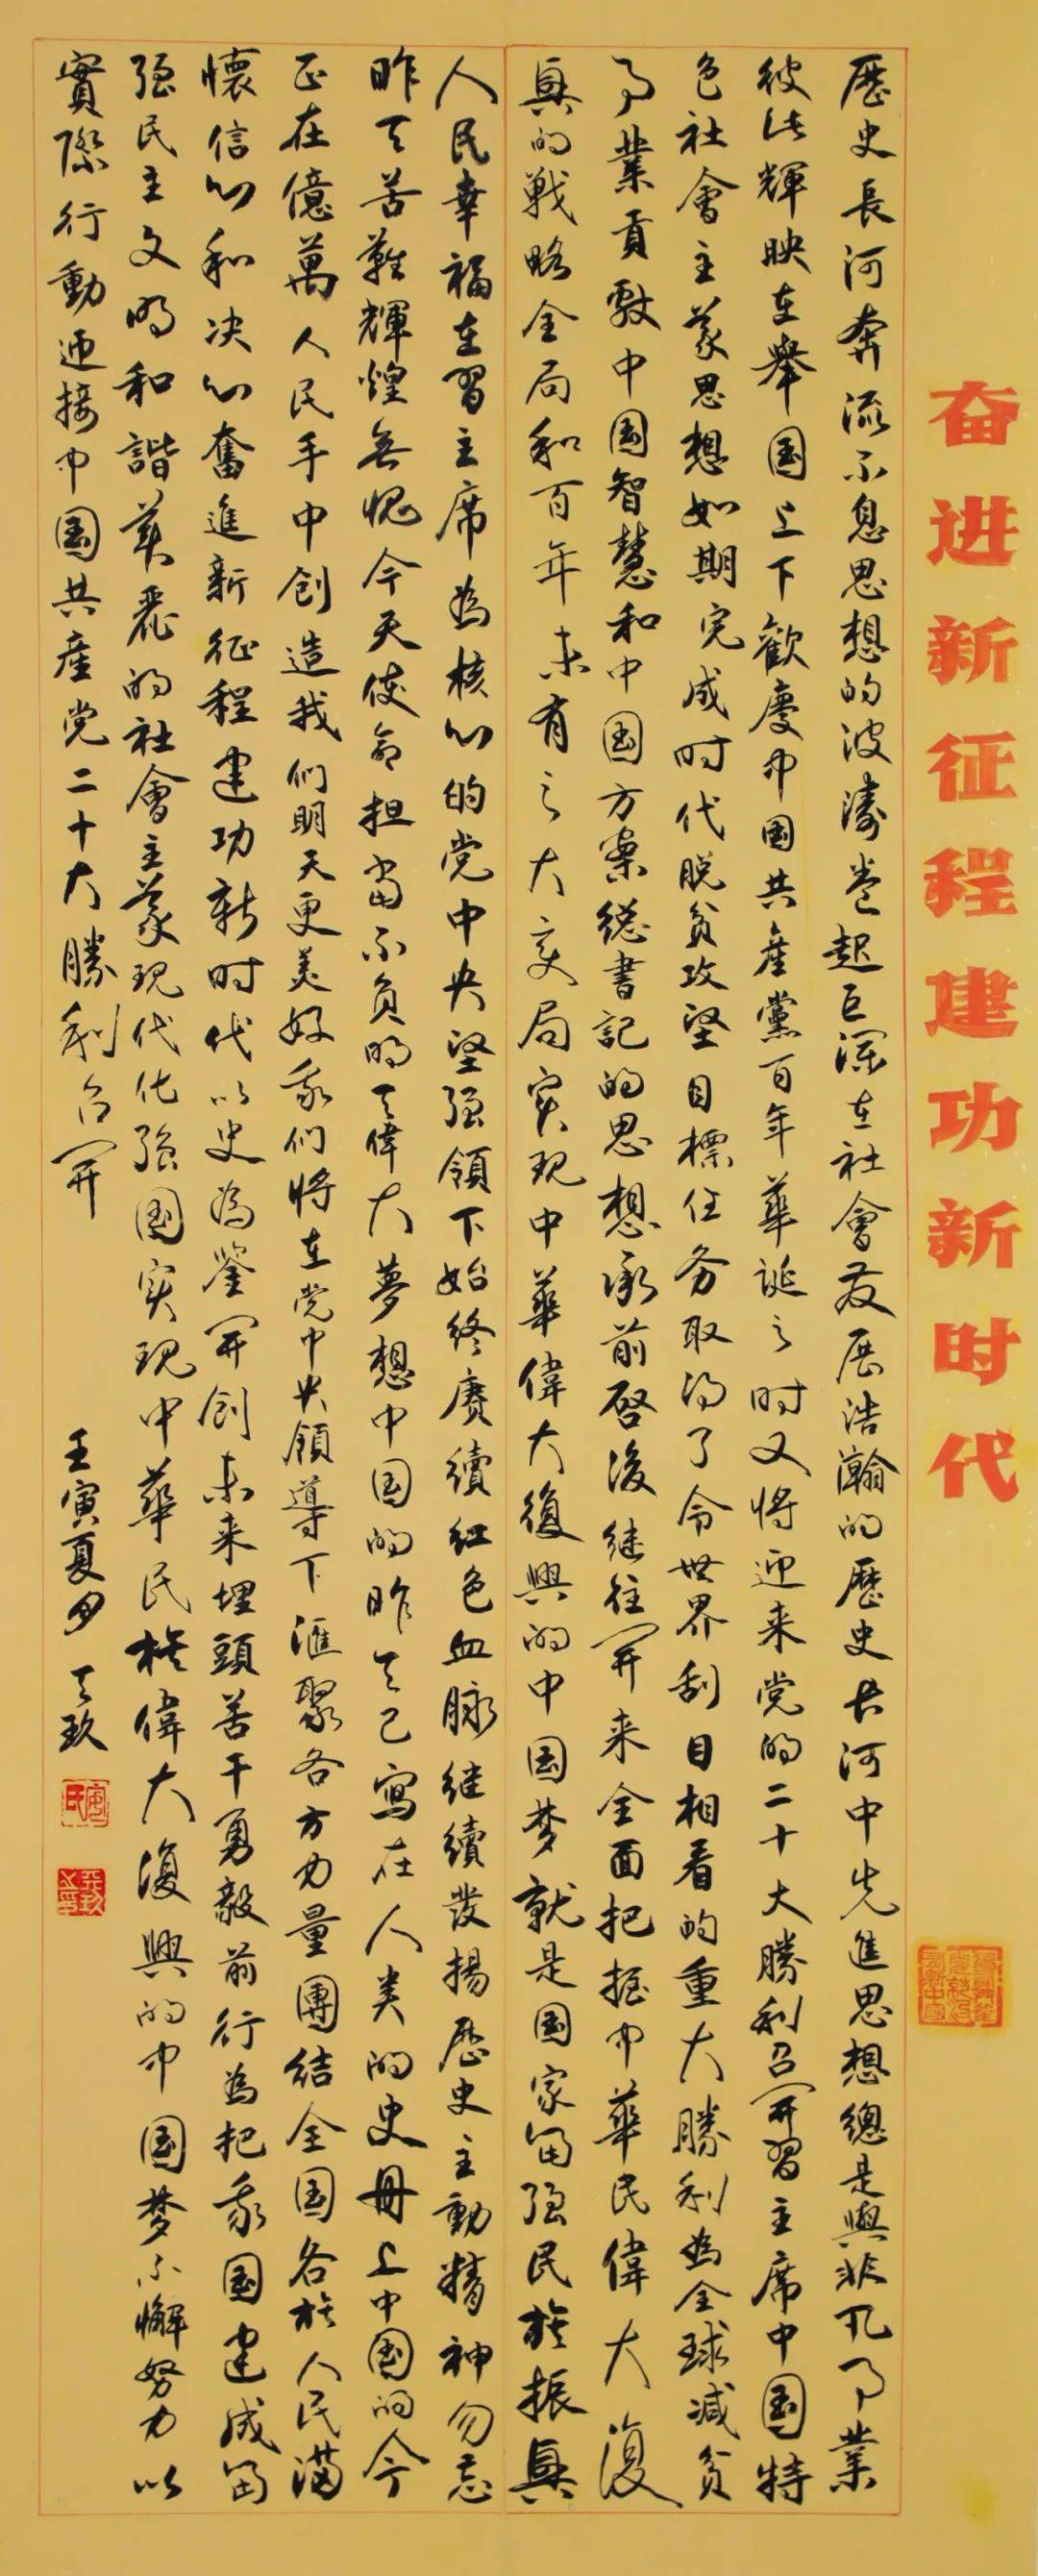 奋进新征程建功新时代
歷史長河奔流不息思想的波濤卷起巨瀾在社會发展浩瀚的歷史长河中先進思想總是與非凡事業
彼此輝映在舉国上下歡慶中國共產黨百年華誕之时又将迎来党的二十大勝利召開習主席中国特
色社會主义思想如期完成时代脱貧攻坚目標任务取得了令世界刮目相看的重大勝利為全球减貧
事業貢献中國智慧和中国方案總書記的思想承前启後继往開来全面把握中華民偉大復
興的戰略全局和百年未有之大变局实现中華偉大復興的中国梦就是国家富强民族振興
人民幸福在習主席為核心的党中央坚强領下始终赓續红色血脉继續发揚歷史主動精神勿忘
昨天苦難輝煌無愧今天使命担当不負明天偉大夢想中国的昨天已寫在人类的史册上中國的今
正在億萬人民手中創造我们明天更美好我们将在党中央領導下滙聚各方力量團結全国各族人民满
懷信心和决心奮進新征程建功新时代以史為鉴開創未来埋頭苦干勇毅前行為把我國建成富
强民主文明和諧美麗的社會主义现代化强國实现中華民族偉大復興的中國梦不懈努力以
實際行動迎接中国共產党二十大勝利召開
壬寅夏月 天玖